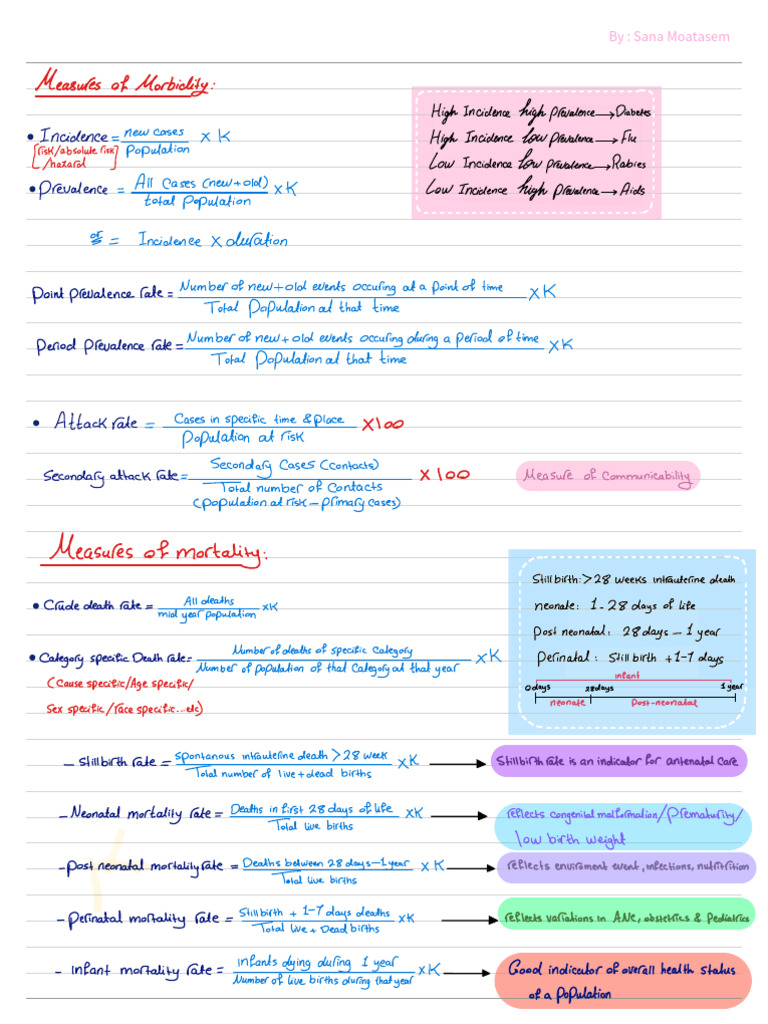 By : Sana Moatasem
Measures of Morbidity:
High Incidence high prevalence → Diabetes
High Incidence low prevalence → Flu
Low Incidence low prevalence → Rabies
Low Incidence high prevalence → Aids
• Incidence = new cases / Population x K
[risk/absolute risk/hazard]
• Prevalence = All Cases (new+old) / total population x K
or = Incidence x duration
Point prevalence rate = Number of new+old events occuring at a point of time / Total population at that time x K
Period prevalence rate = Number of new+old events occuring during a period of time / Total population at that time x K
• Attack rate = Cases in specific time & place / population at risk x100
Secondary attack rate = Secondary Cases (contacts) / Total number of contacts x 100
(population at risk – primary cases)
Measure of communicability
Measures of mortality:
Still birth: > 28 weeks intrauterine death
neonate: 1 - 28 days of life
post neonatal: 28 days – 1 year
Perinatal: Still birth + 1-7 days
infant
0 days 28 days 1 year
neonate post-neonatal
• Crude death rate = All deaths / mid year population x K
• Category specific Death rate = Number of deaths of specific category / Number of population of that category at that year x K
(Cause specific/Age specific/
Sex specific/race specific...etc)
– Still birth rate = spontanous intrauterine death > 28 week / Total number of live + dead births x K → Still birth rate is an indicator for antenatal care
– Neonatal mortality rate = Deaths in first 28 days of life / Total live births x K → reflects congenital malformation/prematurity/
low birth weight
– post neonatal mortality rate = Deaths between 28 days–1 year / Total live births x K → reflects enviroment event, infections, nutritrition
– Perinatal mortality rate = Still birth + 1-7 days deaths / Total live + Dead births x K → reflects variations in ANC, obstetrics & Pediatrics
– infant mortality rate = infants dying during 1 year / Number of live births during that year x K → Good indicator of overall health status
of a population